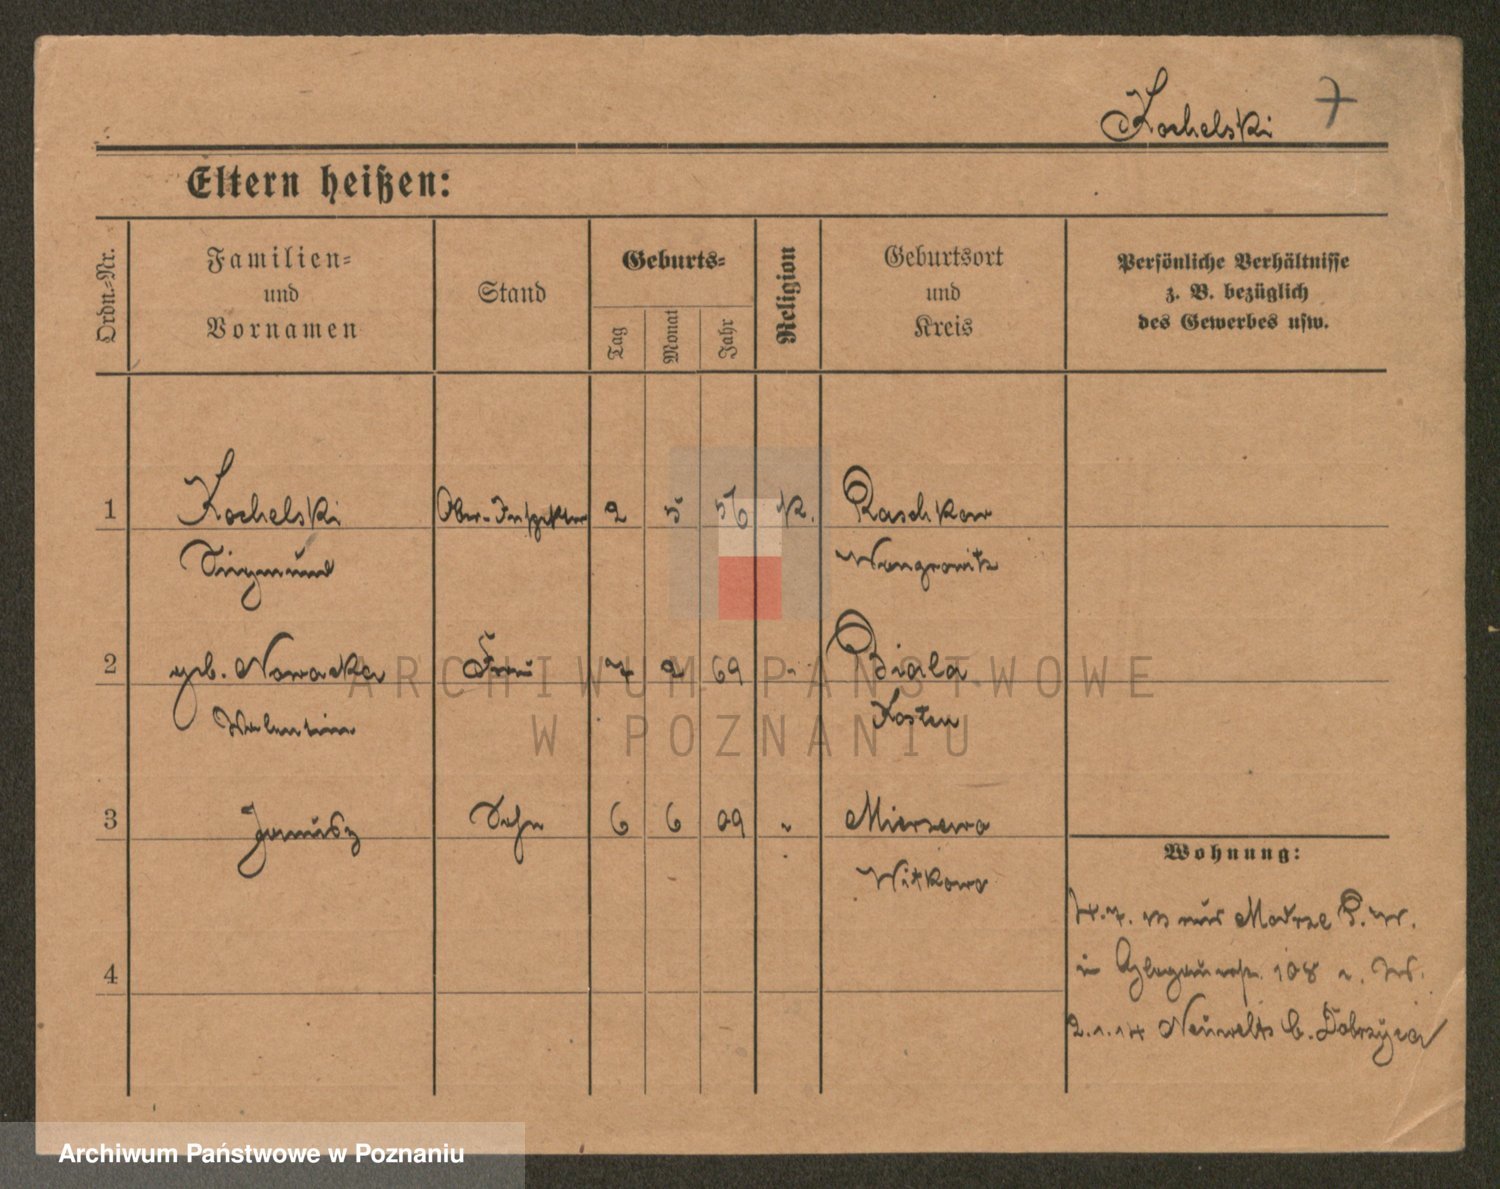 Kochelski 7
Eltern heißen:
Ordn.-Nr.
Familien-
und
Vornamen
Stand
Geburts-
Tag
Monat
Jahr
Religion
Geburtsort
und
Kreis
Persönliche Verhältnisse
z. B. bezüglich
des Gewerbes usw.
1 Kochelski Ober-Inspektor 2 5 56 K. Raschkow
Sigmund Wongrowitz
2 geb. Nowacka Frau 7 2 69 " Biala
Valentina Kosten
3 Janusz Sohn 6 6 09 " Mierzewo
Witkowo
4
Wohnung:
aus Modrze P. W.
in 108
2.1.14 Neuwelt b. Dobrzyca
ARCHIWUM PAŃSTWOWE
W POZNANIU
Archiwum Państwowe w Poznaniu